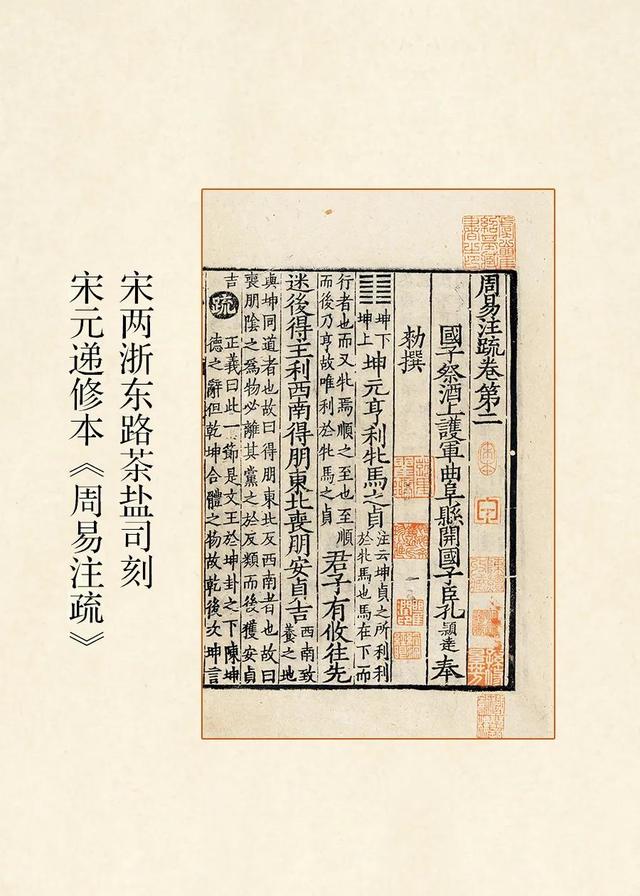 周易注疏卷第二
國子祭酒上護軍曲阜縣開國子臣孔穎達奉
勑撰
䷁坤下坤上坤元亨利牝馬之貞注云坤貞之所利利於牝馬也馬在下而
行者也而又牝焉順之至也至順而後乃亨故唯利於牝馬之貞君子有攸往先
迷後得主利西南得朋東北喪朋安貞吉西南致養之地
與坤同道者也故曰得朋東北反西南者也故曰喪朋陰之為物必離其黨之於反類而後獲安貞
吉疏正義曰此一節是文王於坤卦之下陳坤德之辭但乾坤合體之物故乾後次坤言
宋两浙东路茶盐司刻
宋元递修本《周易注疏》